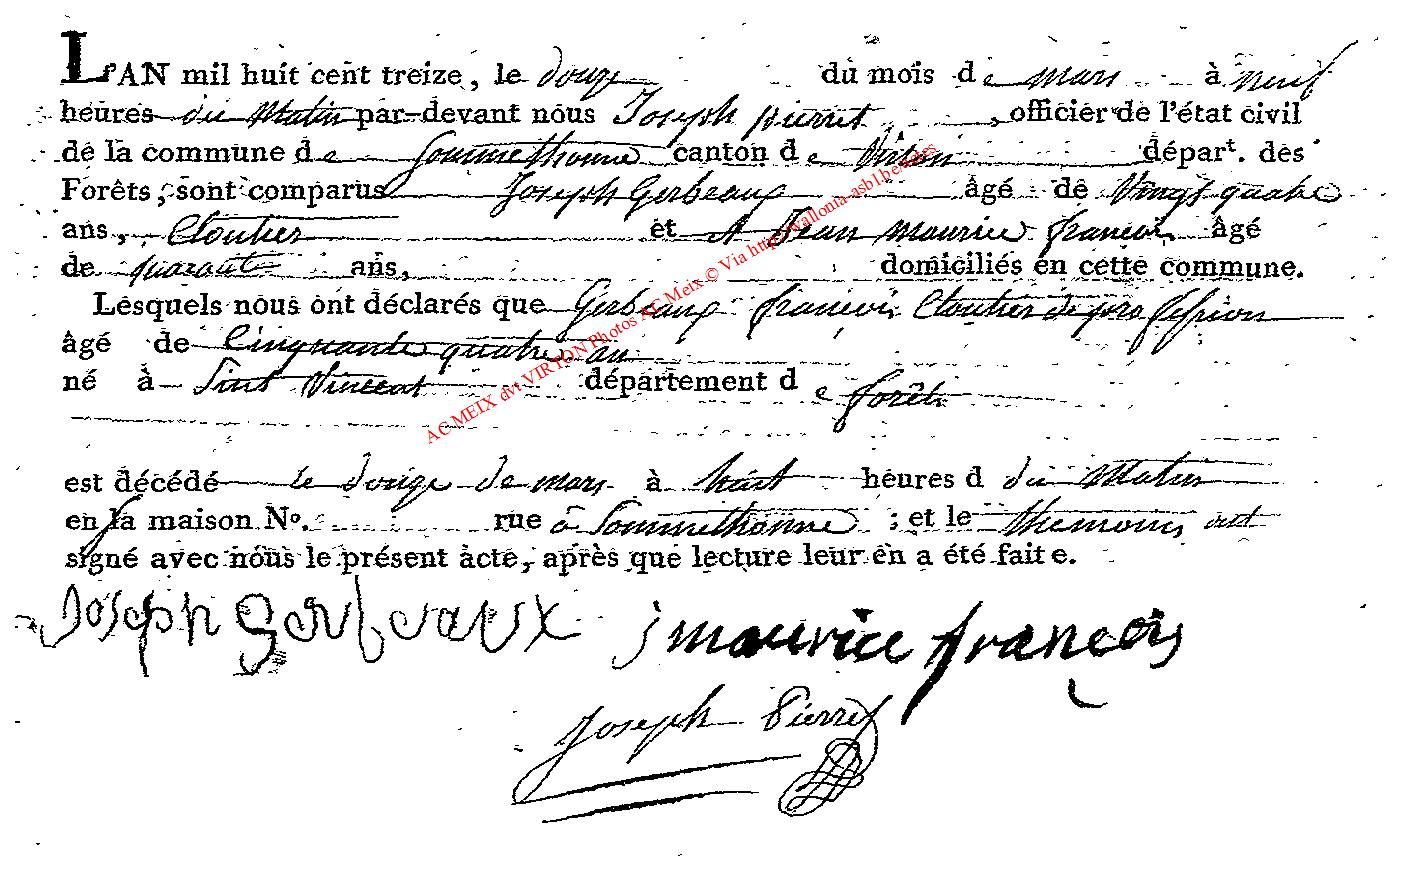 L'AN mil huit cent treize, le douze du mois de mars à neuf
heures du Matin par-devant nous Joseph pierret, officier de l'état civil
de la commune de Sommethonne canton de Virton départ. des
Forêts, sont comparus Joseph Gerbeaux âgé de Vingt quatre
ans, Cloutier et A Jean maurice françois âgé
de quarante ans, domiciliés en cette commune.
Lesquels nous ont déclarés que Gerbeaux françois Cloutier de proffesion
âgé de Cinquante quatre an
né à Sint Vincent département de forêts
est décédé le douze de mars à huit heures d du Matin
en sa maison No. rue à Sommethonne ; et le themoins ont
signé avec nous le présent acte, après que lecture leur en a été faite.
Joseph Gerbeaux j maurice françois
Joseph Pierret
AC MEIX dvt VIRTON Photos AC Meix © Via http://wallonia-asbl.be